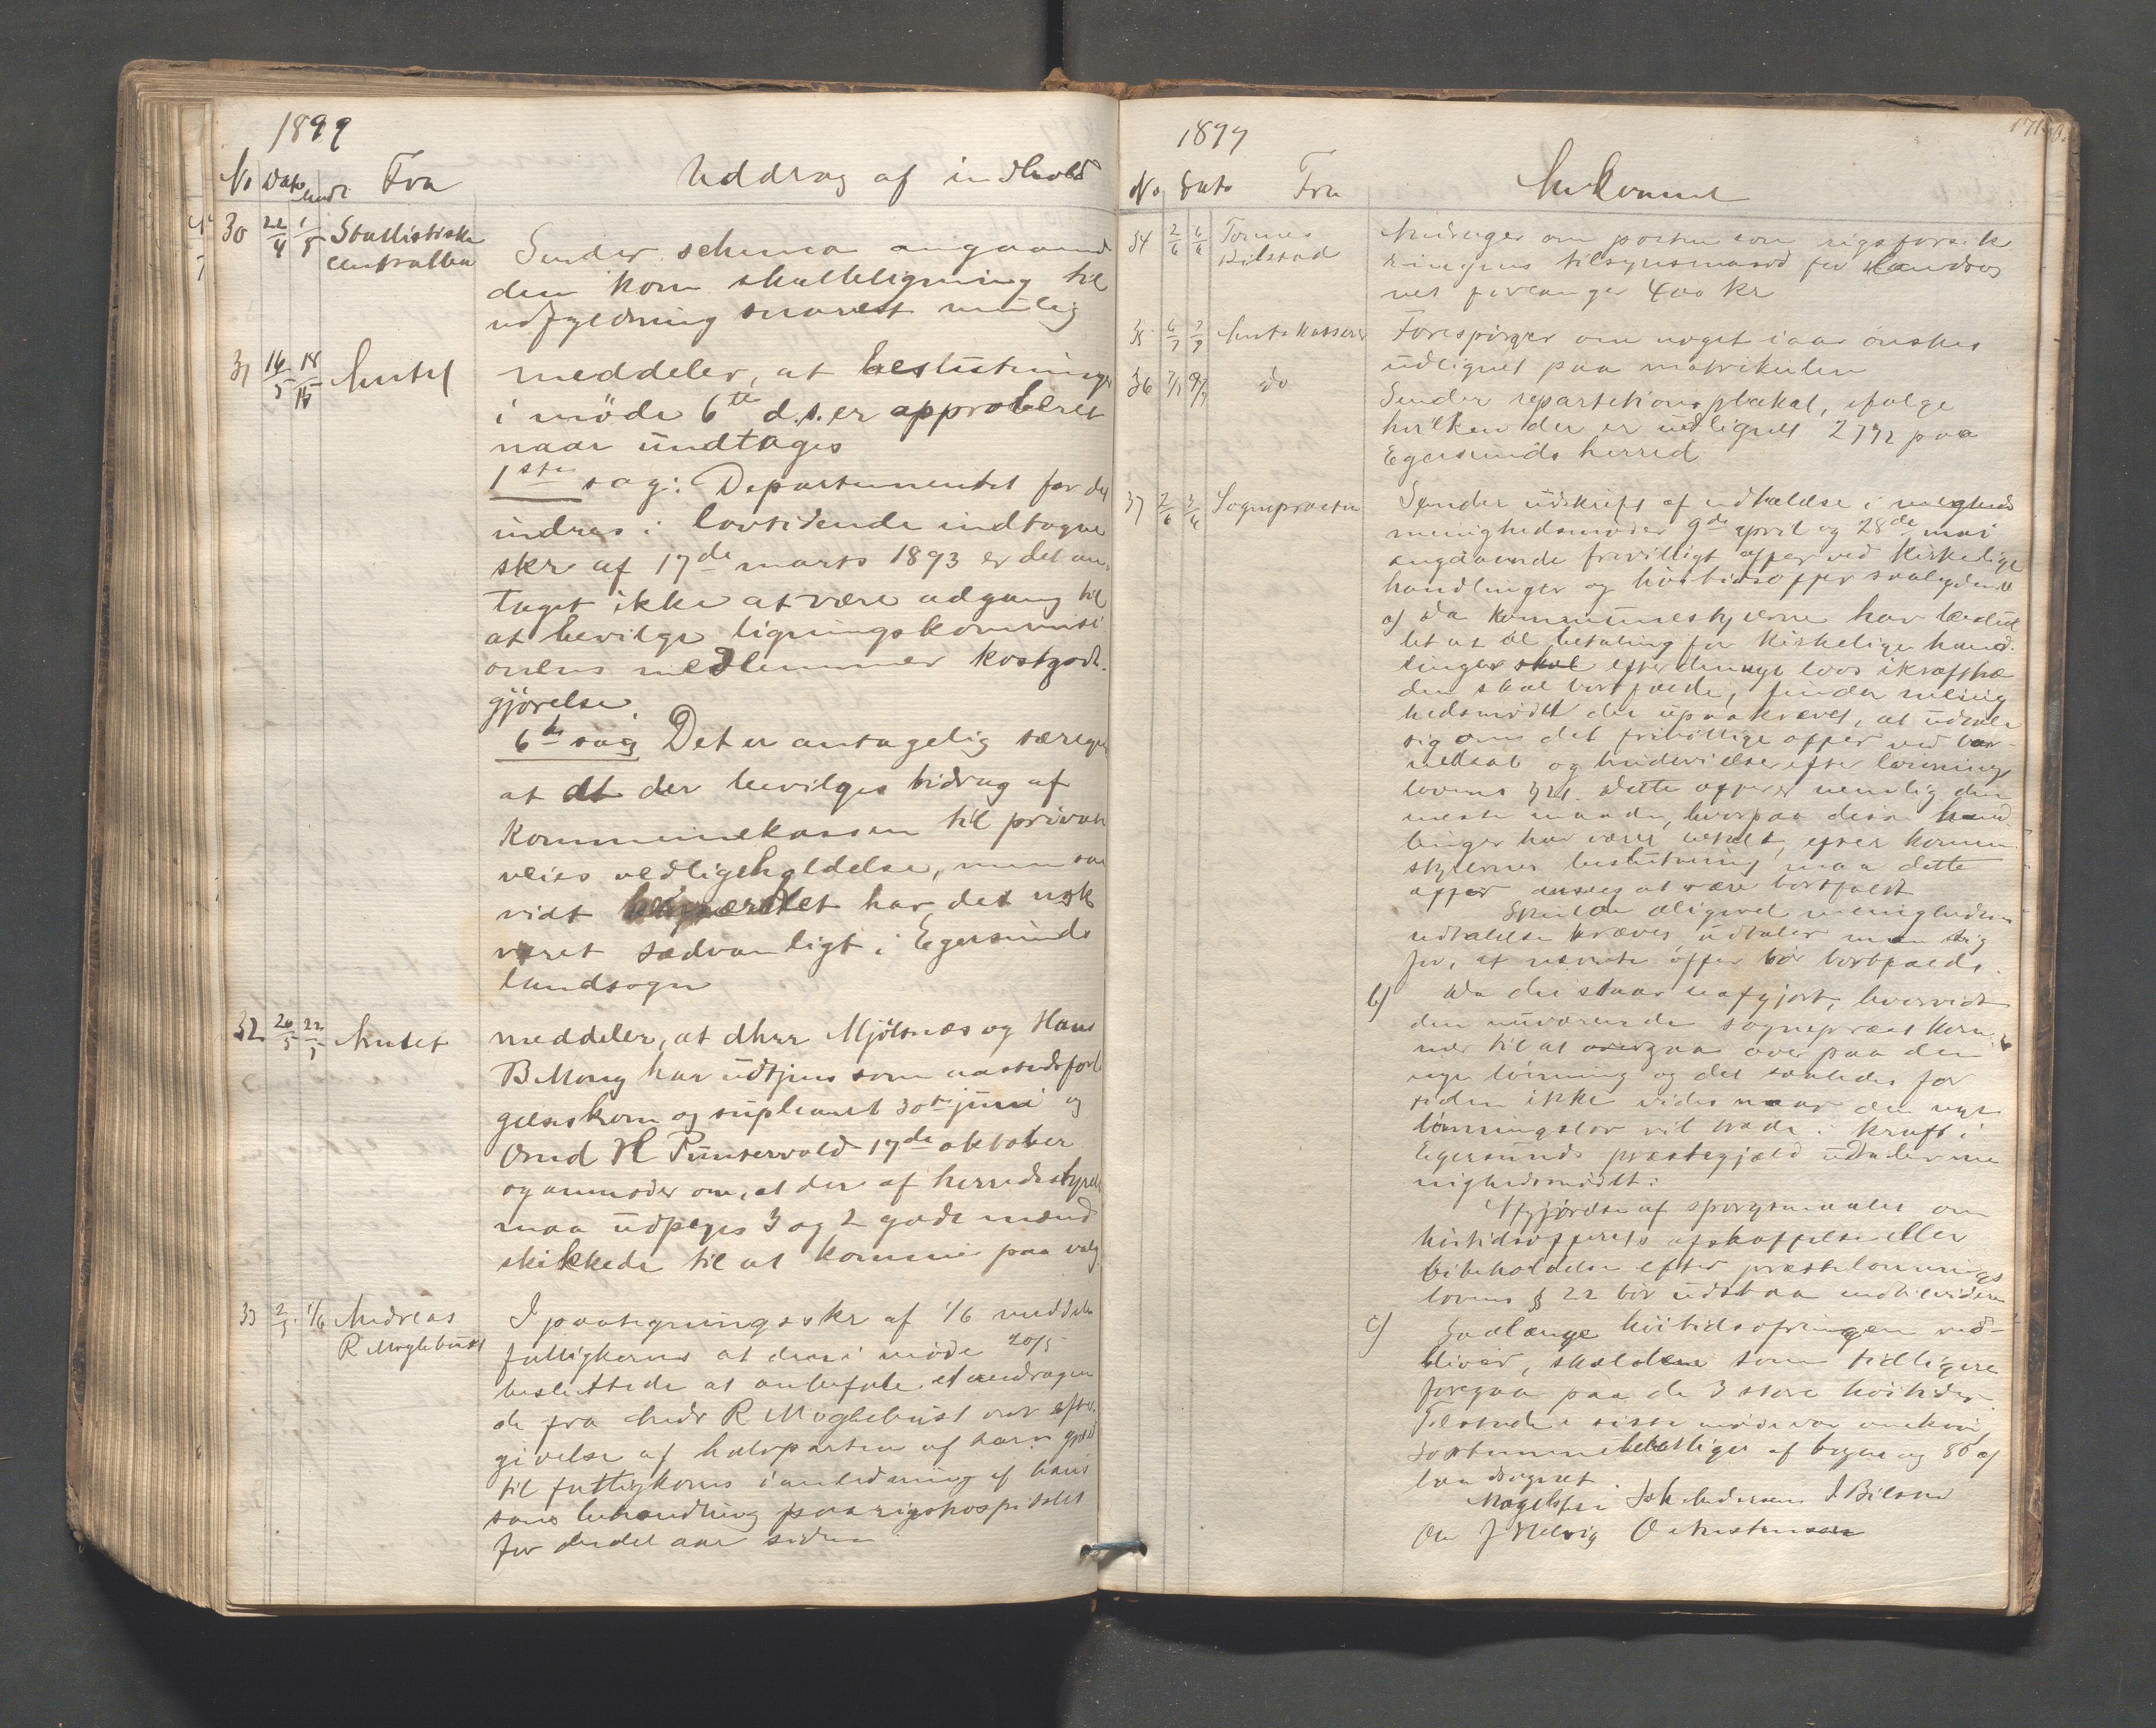 1899
No Dato Indk Fra Uddrag af indhold
30 22/4 1/5 Stattistiske
centralbu
Sender schema angaaend
den kom skatteligning til
udfyldning snarest mulig
31 16/5 18/5 Amtet meddeler, at beslutninger
i møde 6te d.s. er approberet
naar undtages
1ste sag: Departementet for det
indres i lovtidende indtagne
skr af 17de marts 1893 er det an-
taget ikke at være adgang til
at bevilge ligningskommisi
onens medlemmer kostgodt-
gjørelse.
6te sag Det er antagelig
at dt der bevilges bidrag af
kommunekassen til privat
veies vedligeholdelse, men saa
vidt har det nok
været sædvanligt i Egersunds
landsogn
32 20/5 22/5 Amtet meddeler, at dhrr Mjølsnæs og Hans
B Mong har udtjent som aastedsforl
gelseskom og supleant 30te juni og
Omd H Puntervold 17de oktober
og anmoder om, at der af herredsstyret
maa udpeges 3 og 2 gode mænd
skikkede til at komme paa valg
33 2/5 1/6 Andreas
R Møglebust
I paategningsskr af 1/6 meddele
fattigkoms at den i møde 20/5
besluttede at anbefale et andragen
de fra Andr R Møglebust om efter-
givelse af halvparten af hans gjæld
til fattigkoms i anledning af hans
søns behandling paa rigshospitalet
for endel aar siden
1899 171
No Dato Fra Ankommet
34 2/6 6/6 Tønnes
Kilstad
Andrager om posten som rigsforsik
ringens tilsynsmand for Landsog
net forlanger 400 kr
35 6/7 7/7 Amtskasserer Forespørger om noget iaar ønskes
udlignet paa matrikulen
36 7/7 9/7 do Sender repartitionsplakat, ifølge
hvilken der er udlignet 2792 paa
Egersunds herred
37 2/6 3/6 Sognepræsten Sender udskrift af udtalelse i
menighedsmøder 9de april og 28de mai
angaaende frivilligt offer ved kirkelige
handlinger og høitidsoffer saalydende
a) Da kommunestyrerne har beslut
tet at al betaling for kirkelige hand-
linger skal efter den nye lovs ikrafttræ
den skal bortfalde, finder menig
hedsmødet det upaakrævet, at udtale
sig om det frivillige offer ved bar-
nedaab og brudevielser efter lønnings
lovens § 21. Dette offer er nemlig den
meste maade, hvorpaa disse hand-
linger har været betalt, efter komm
styrernes beslutning maa dette
offer ansees at være bortfaldt
Skulde aligevel menighedens
udtalelse kræves, udtaler man sig
for, at nævnte offer bør bortfalde.
b) Da det staar uafgjort, hvorvidt
den nuværende sognepræst kom-
mer til at overgaa over paa den
nye lønning og det saaledes for
tiden ikke vides naar den nye
lønningslov vil træde i kraft i
Egersunds præstegjæld udtaler me
nighedsmødet:
Afgjørelse af spørgsmaalet om
høitidsofferets afskaffelse eller
bibeholdelse efter præstelønnings
lovens § 22 bør udstaa indtil videre
c) Saalænge høitidsofringen ved-
bliver, skal den som tidligere
foregaa paa de 3 store høitider.
Tilstede i siste møde var
stemmeberettiger af byen og 86 af
landsognet
Joh Andersen J. Bilstad
Ole J Helvig O Christensen